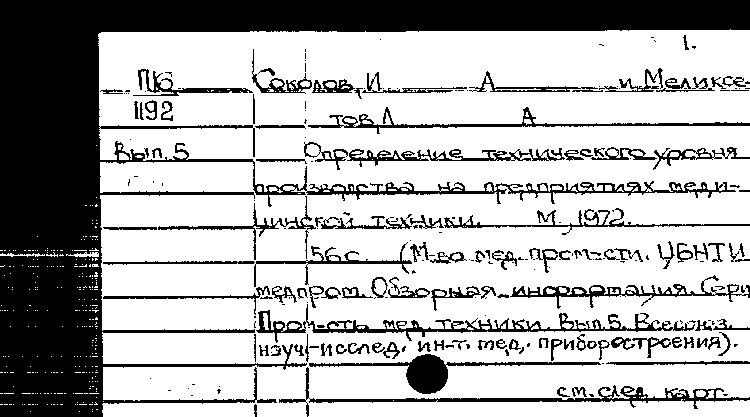 1.
П16 Соколов, И А и Меликсе-
1192 тов, Л А
Вып. 5 Определение технического уровня
производства на предприятиях меди-
цинской техники. М., 1972.
56 с. (М-во мед. пром-сти. ЦБНТИ
медпром. Обзорная информация. Сери
Пром-сть мед. техники. Вып. 5. Всесоюз.
научн-исслед. ин-т. мед. приборостроения).
см. след. карт.